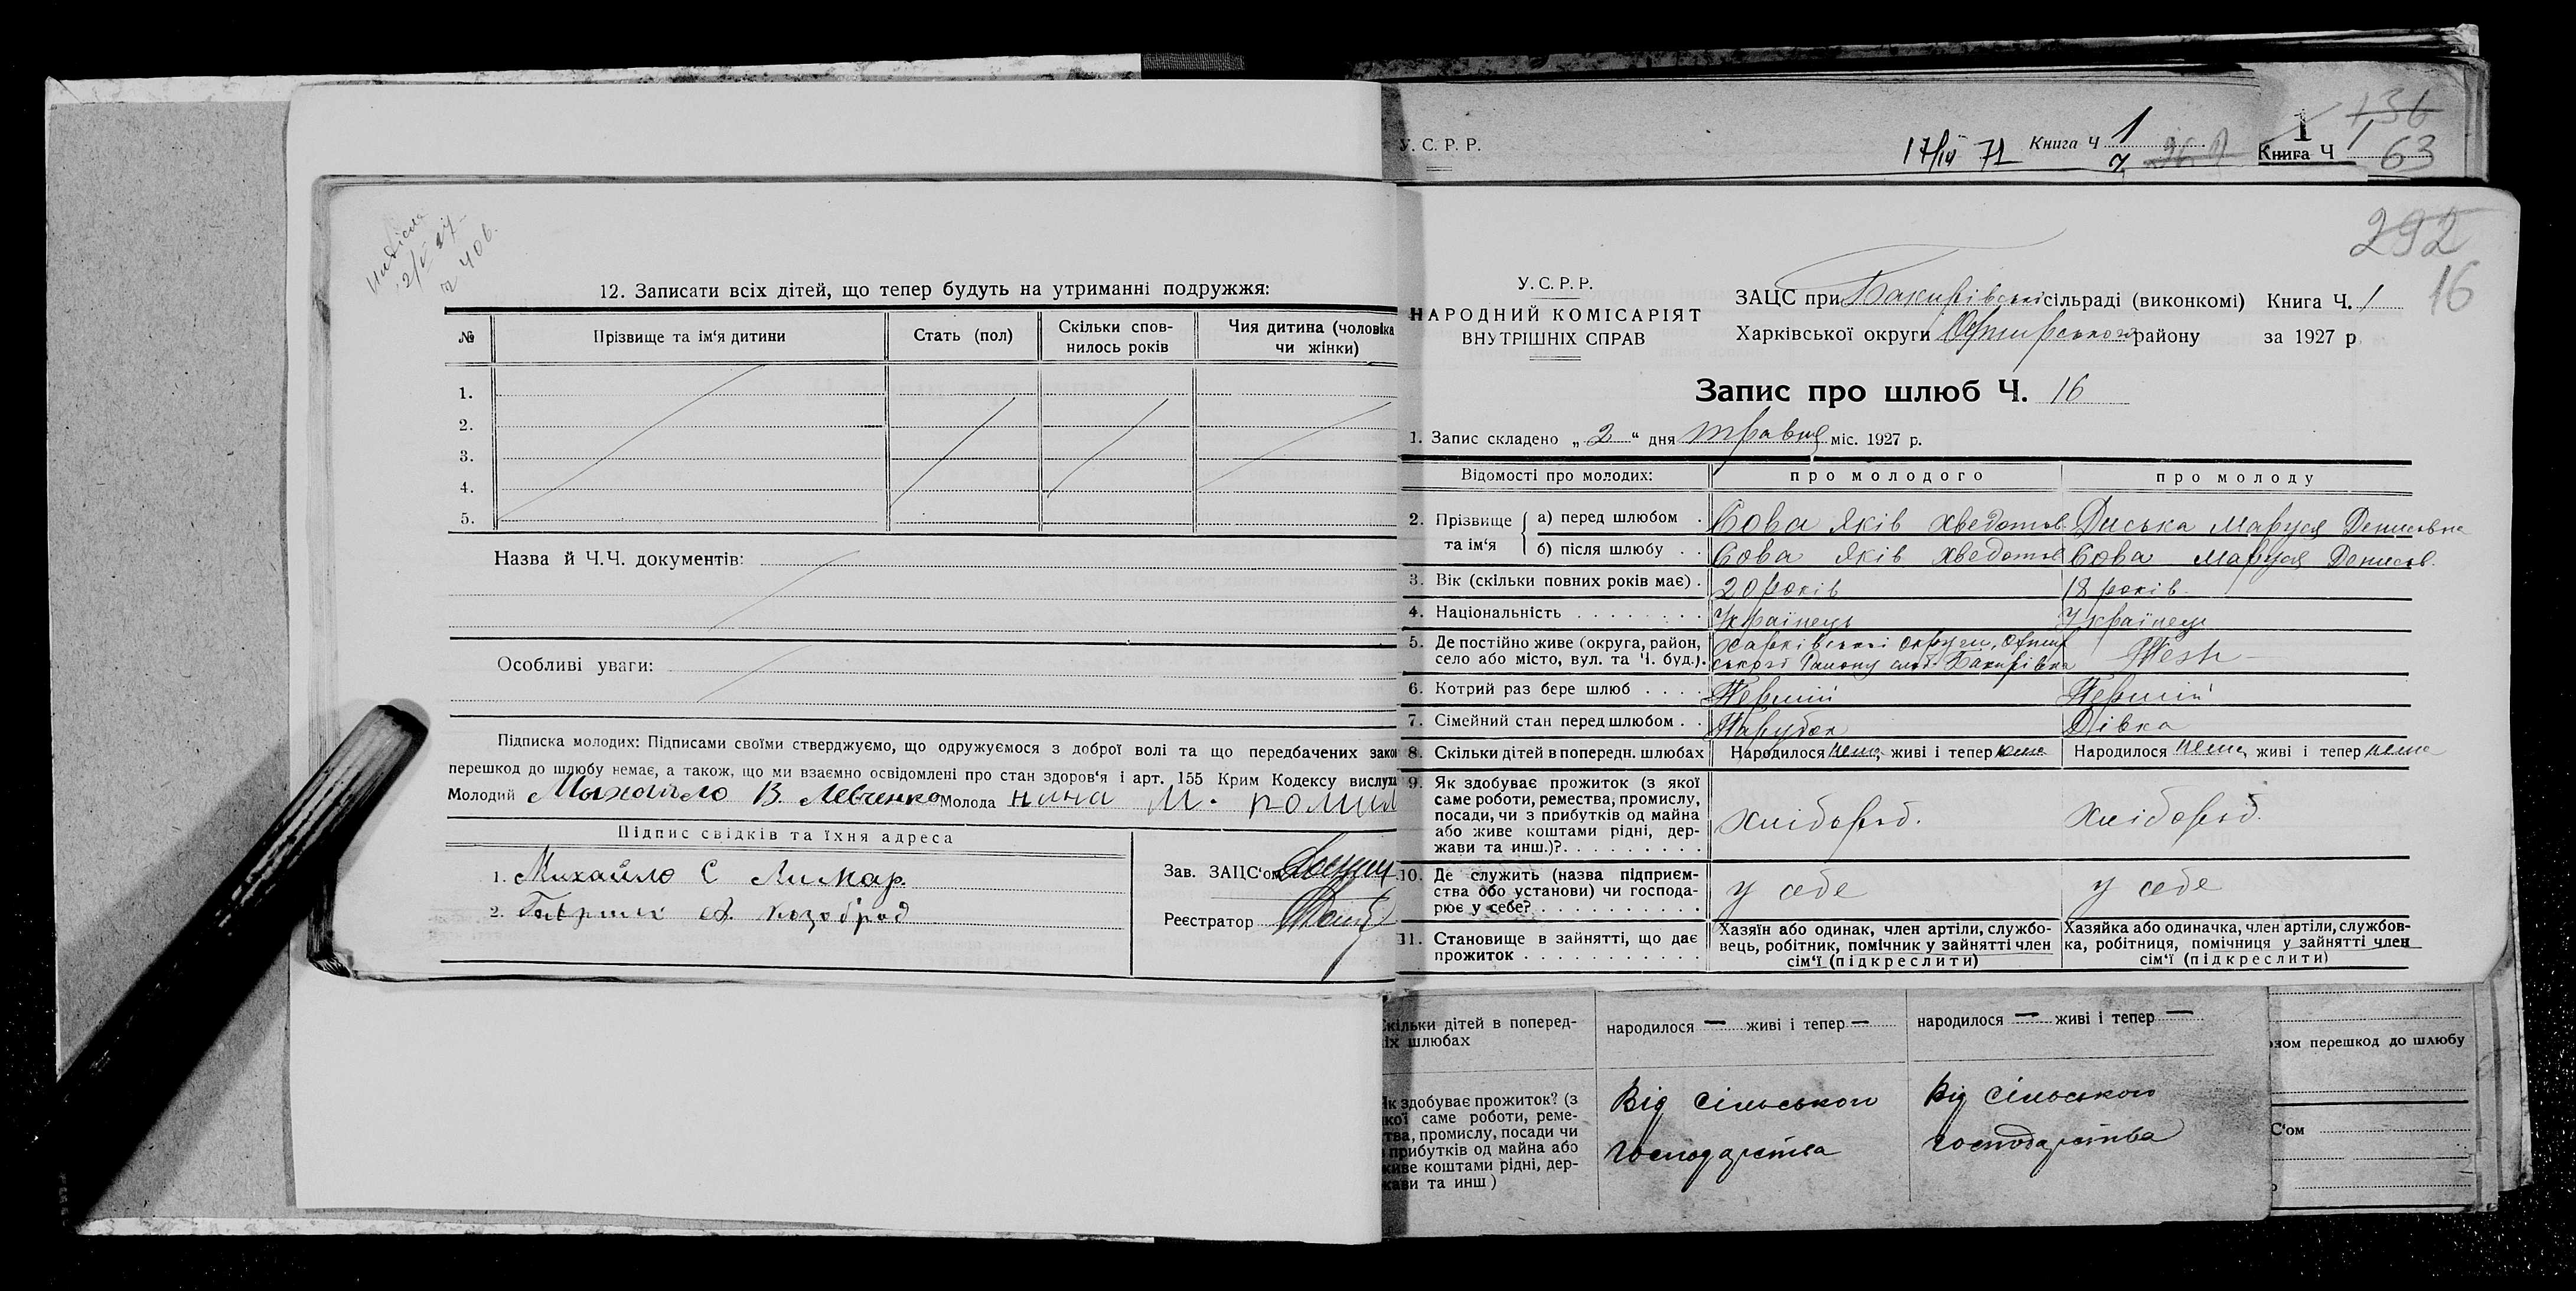 12. Записати всіх дітей, що тепер будуть на утриманні подружжя:
№ Прізвище та ім'я дитини Стать (пол) Скільки спов-
нилось років Чия дитина (чоловіка
чи жінки)
1.
2.
3.
4.
5.
Назва й Ч.Ч. документів:
Особливі уваги:
Підписка молодих: Підписами своїми стверджуємо, що одружуємося з доброї волі та що передбачених зако
перешкод до шлюбу немає, а також, що ми взаємно освідомлені про стан здоров'я і арт. 155 Крим Кодексу вислуха
Молодий Михайло В. Левченко Молода нина М.
Підпис свідків та їхня адреса
1. Михайло С Лимар.
2.
Зав. ЗАЦС'ом
Реєстратор
У. С. Р. Р.
17/IV 71 Книга Ч 1
1
Книга Ч 1
136
63
292
16
У. С. Р. Р.
НАРОДНИЙ КОМІСАРІЯТ
ВНУТРІШНІХ СПРАВ
ЗАЦС при Бакирівські сільраді (виконкомі) Книга Ч. 1
Харківської округи Охтирського району за 1927 р
Запис про шлюб Ч. 16
1. Запис складено „2" дня травня міс. 1927 р.
Відомості про молодих: про молодого про молоду
2. Прізвище та ім'я
а) перед шлюбом . Сова Яків Хведотов. Диська Маруся Денисовна
б) після шлюбу . . Сова Яків Хведотов Сова Маруся Денисов.
3. Вік (скільки повних років має) . 20 років 18 років.
4. Національність . . . . . . . . Українець Українець
5. Де постійно живе (округа, район,
село або місто, вул. та Ч. буд.). Харківської округи, Охтир
ського Району слоб. Бакирівка Теж
6. Котрий раз бере шлюб . . . . Перший Перший
7. Сімейний стан перед шлюбом . . Парубок Дівка
8. Скільки дітей в попередн. шлюбах Народилося нема живі і тепер нема Народилося нема живі і тепер нема
9. Як здобуває прожиток (з якої
саме роботи, ремества, промислу,
посади, чи з прибутків од майна
або живе коштами рідні, дер-
жави та инш.)?. . . . . . . . . Хлібороб. Хлібороб.
10. Де служить (назва підприєм-
ства або установи) чи господа-
рює у себе? . . . . . . . . . . у себе у себе
11. Становище в зайнятті, що дає
прожиток . . . . . . . . . . .
Хазяїн або одинак, член артіли, службо-
вець, робітник, помічник у зайнятті член
сім'ї (підкреслити)
Хазяйка або одиначка, член артіли, службов-
ка, робітниця, помічниця у зайнятті член
сім'ї (підкреслити)
кільки дітей в поперед-
іх шлюбах
народилося — живі і тепер —
народилося — живі і тепер —
як здобуває прожиток? (з
якої саме роботи, реме-
тва, промислу, посади чи
прибутків од майна або
живе коштами рідні, дер-
жави та инш )
Від сільського
господарства
Від сільського
господарства
ном перешкод до шлюбу
С'ом